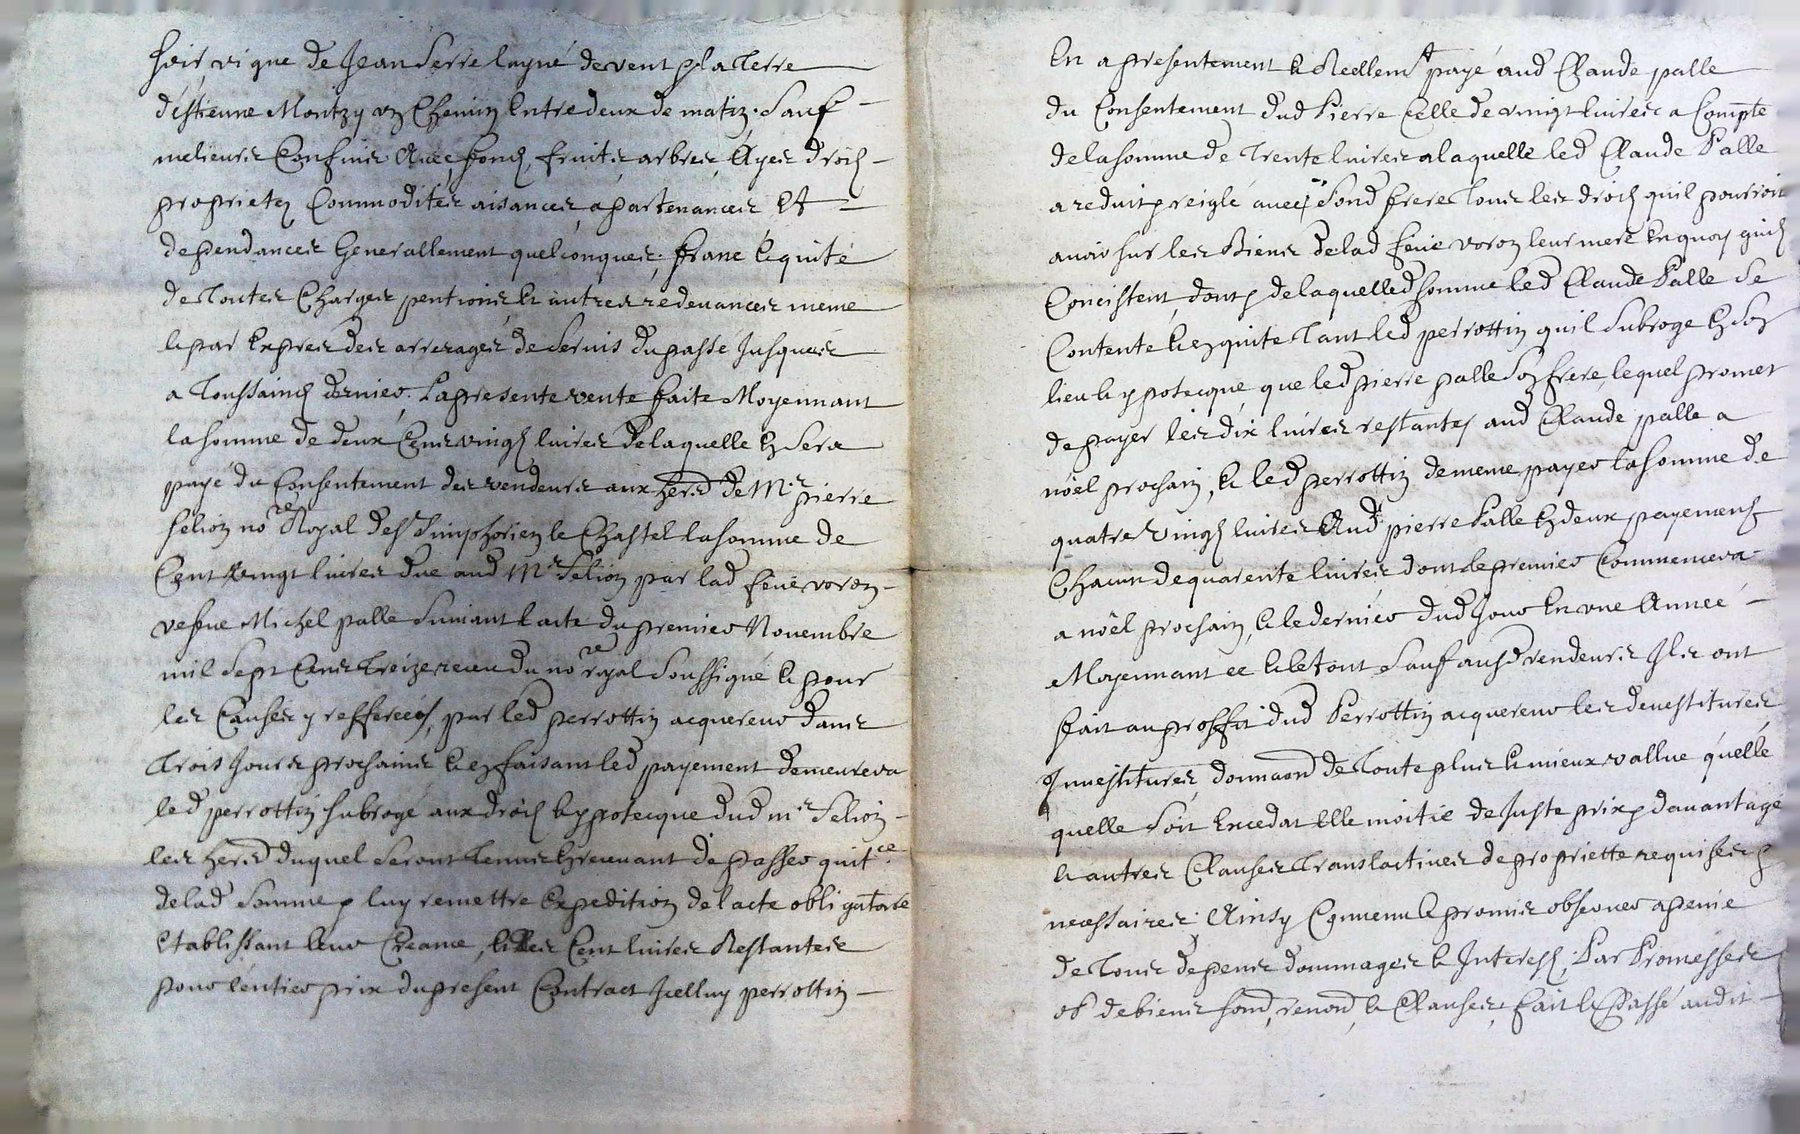 soir, vigne de Jean Serre layné de vent p la Terre
d'éstienne Montzy un Chemin Entredeux de matin. Sauf
melieurs Confins Avec fond, fruits arbres, Ayes droits
proprietez Commodites aisances apartenances Et
dependances Generallement quelconques, franc & quité
de Toutes Charges pentions, & autres redevances meme
& par Exprés des arrerages de servis du passé Jusques
a Toussaincts dernier. La presente vente faite Moyennant
la somme de deux Cens vingt livres de laquelle En sera
payé du Consentement des vendeurs aux hers de Mr pierre
Felion nore Royal de St Simphorien le Chastel la somme de
Cent vingt livres due aud Mr Felion par lad feüe voron
vefve Michel palle suivant l acte du premier Novembre
mil sept Cens treize receu du nore royal soussigné & pour
les Causes y refferées, par led perrottin acquereur dans
Trois Jours prochains & en faisant led payement demeurera
led perrottin subrogé aux droits & ypotecque dud mr Felion
les hers duquel seront tenus En recevant de passer quitce
de lad somme & luy remettre Expedition de l acte obligatoire
Etablissant leur Creance, & les Cent livres Restantes
pour l'entier prix du present Contract Icelluy perrottin
En a presentement & Reellemt payé aud Claude palle
du Consentement dud Pierre Celle de vingt livres a Compte
de la somme de Trente livres a laquelle led Claude Palle
a reduit & reiglé avec sond frere Tous les droits quil pourroit
avoir sur les Biens de lad feüe voron leur mere En quoy quils
Concistent, dont & de laquelle d somme led Claude Palle se
Contente & en quite Tant led perrottin quil subroge En son
lieu & ypotecque que led pierre palle son frere, lequel promet
de payer les dix livres restantes aud Claude palle a
nöel prochain, & led perrottin de meme payer la somme de
quatre vingts livres Aud pierre Palle En deux payements
Chacun de quarente livres dont le premier Commencera
a nöel prochain, & le dernier dud Jour En une Année
Moyennant ce & le tout sauf ausd vendeurs Ils ont
fait au proffit dud Perrottin acquereur les devestitures
Investitures, donnaon de Toute plus & mieux vallue quelle
quelle soit Excedat Elle moitie de Juste prix & davantage
& autres Clauses Translactives de propriette requises &
necessaires. Ainsy Convenu & promis observer a peine
de Tous depens dommages & Interests, Par Promesses
ob de biens soud, renond, & Clauses, fait & Passé audit